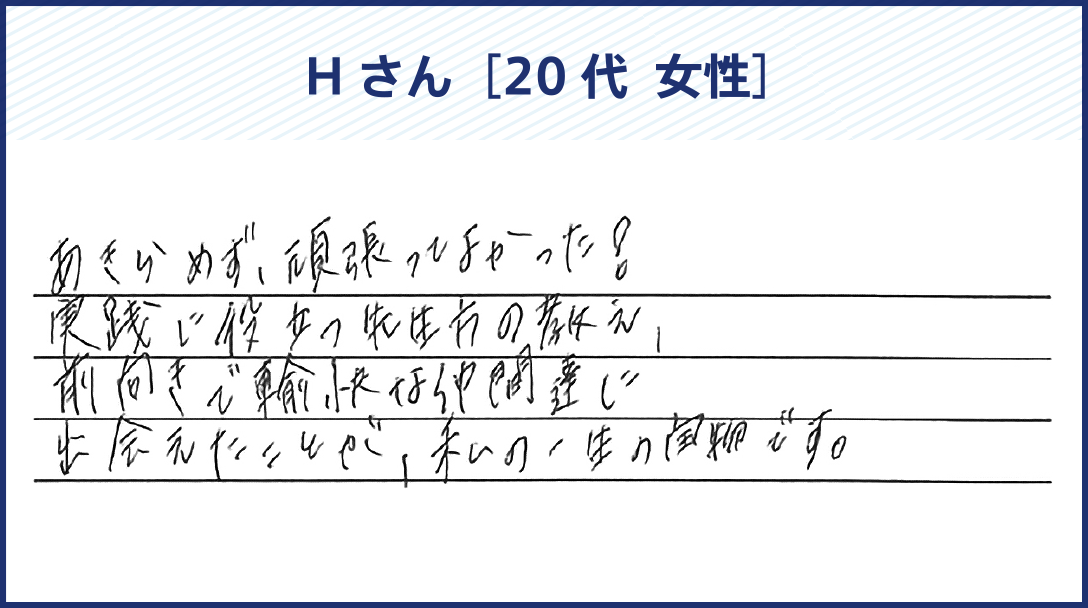 Hさん [20代 女性]
あきらめず、頑張ってよかった!
実践に役立つ先生方の教え、
前向きで愉快な仲間達に
出会えたことが、私の一生の宝物です。